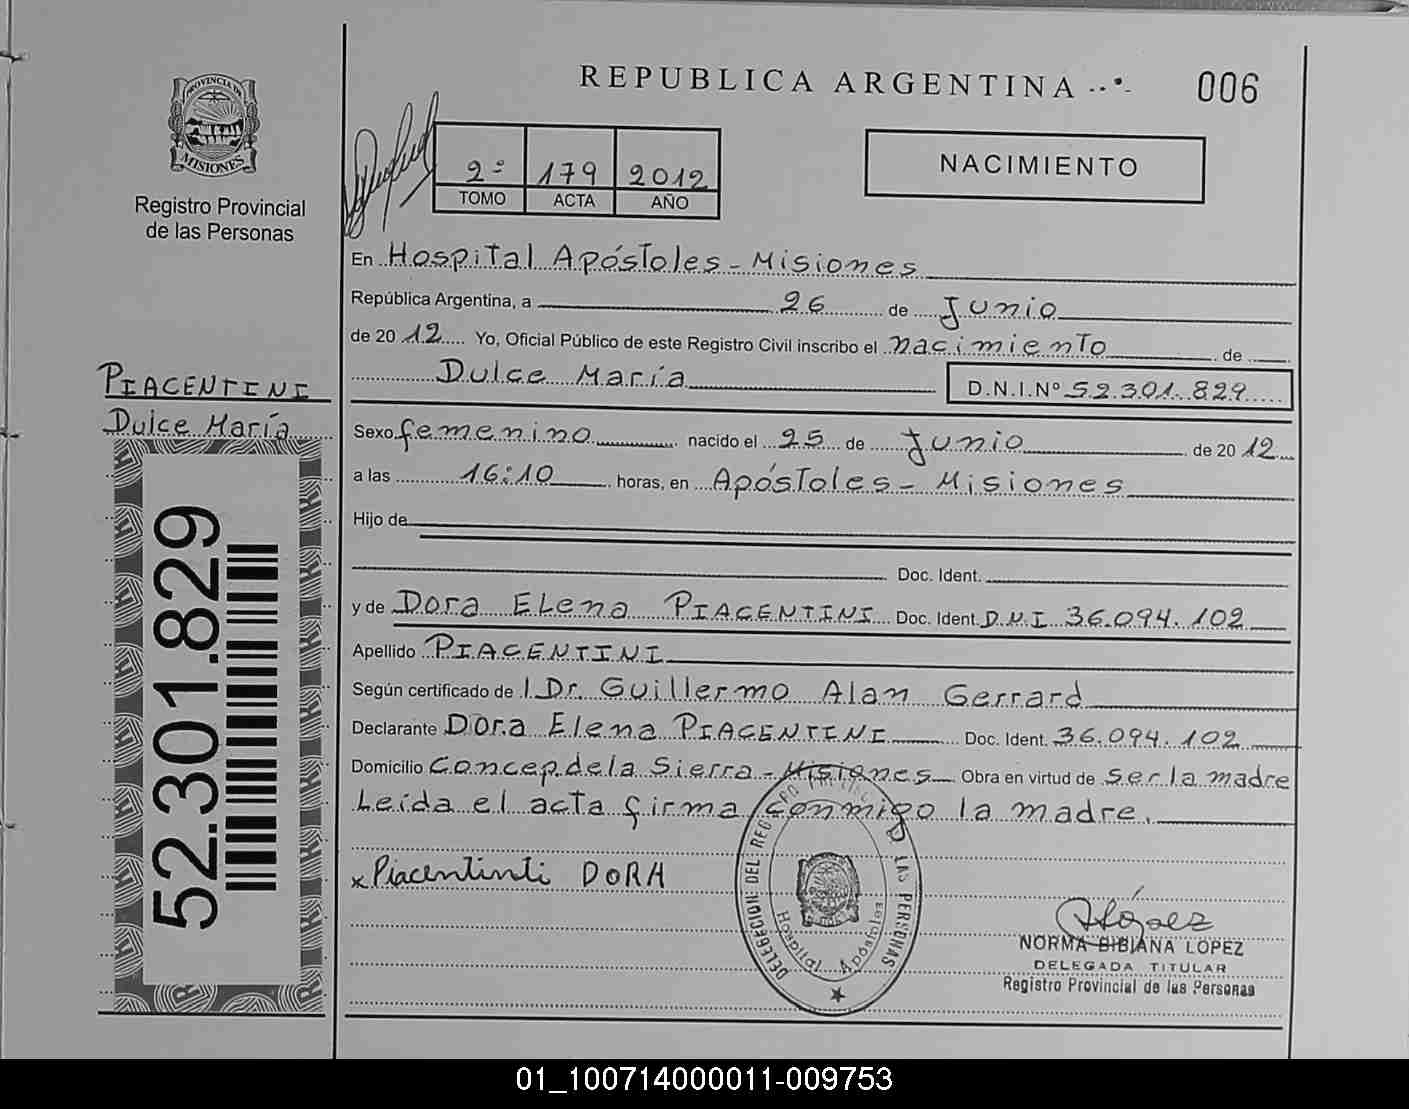 PROVINCIA DE
MISIONES
Registro Provincial
de las Personas
PIACENTINI
Dulce María
52.301.829
REPUBLICA ARGENTINA
006
2º 179 2012
TOMO ACTA AÑO
NACIMIENTO
En Hospital Apóstoles - Misiones
República Argentina, a 26 de Junio
de 2012 Yo, Oficial Público de este Registro Civil inscribo el nacimiento de
Dulce María D.N.I.Nº 52.301.829
Sexo femenino nacido el 25 de Junio de 2012
a las 16:10 horas, en Apóstoles - Misiones
Hijo de
Doc. Ident.
y de Dora Elena PIACENTINI Doc. Ident. D.N.I 36.094.102
Apellido PIACENTINI
Según certificado de Dr. Guillermo Alan Gerrard
Declarante Dora Elena PIACENTINI Doc. Ident. 36.094.102
Domicilio Concep. de la Sierra - Misiones Obra en virtud de ser la madre
Leída el acta firma conmigo la madre.
x Piacentinti DORA
DELEGECION DEL REGISTRO PROVINCIAL DE LAS PERSONAS
Hospital Apóstoles
NORMA BIBIANA LOPEZ
DELEGADA TITULAR
Registro Provincial de las Personas
01_100714000011-009753